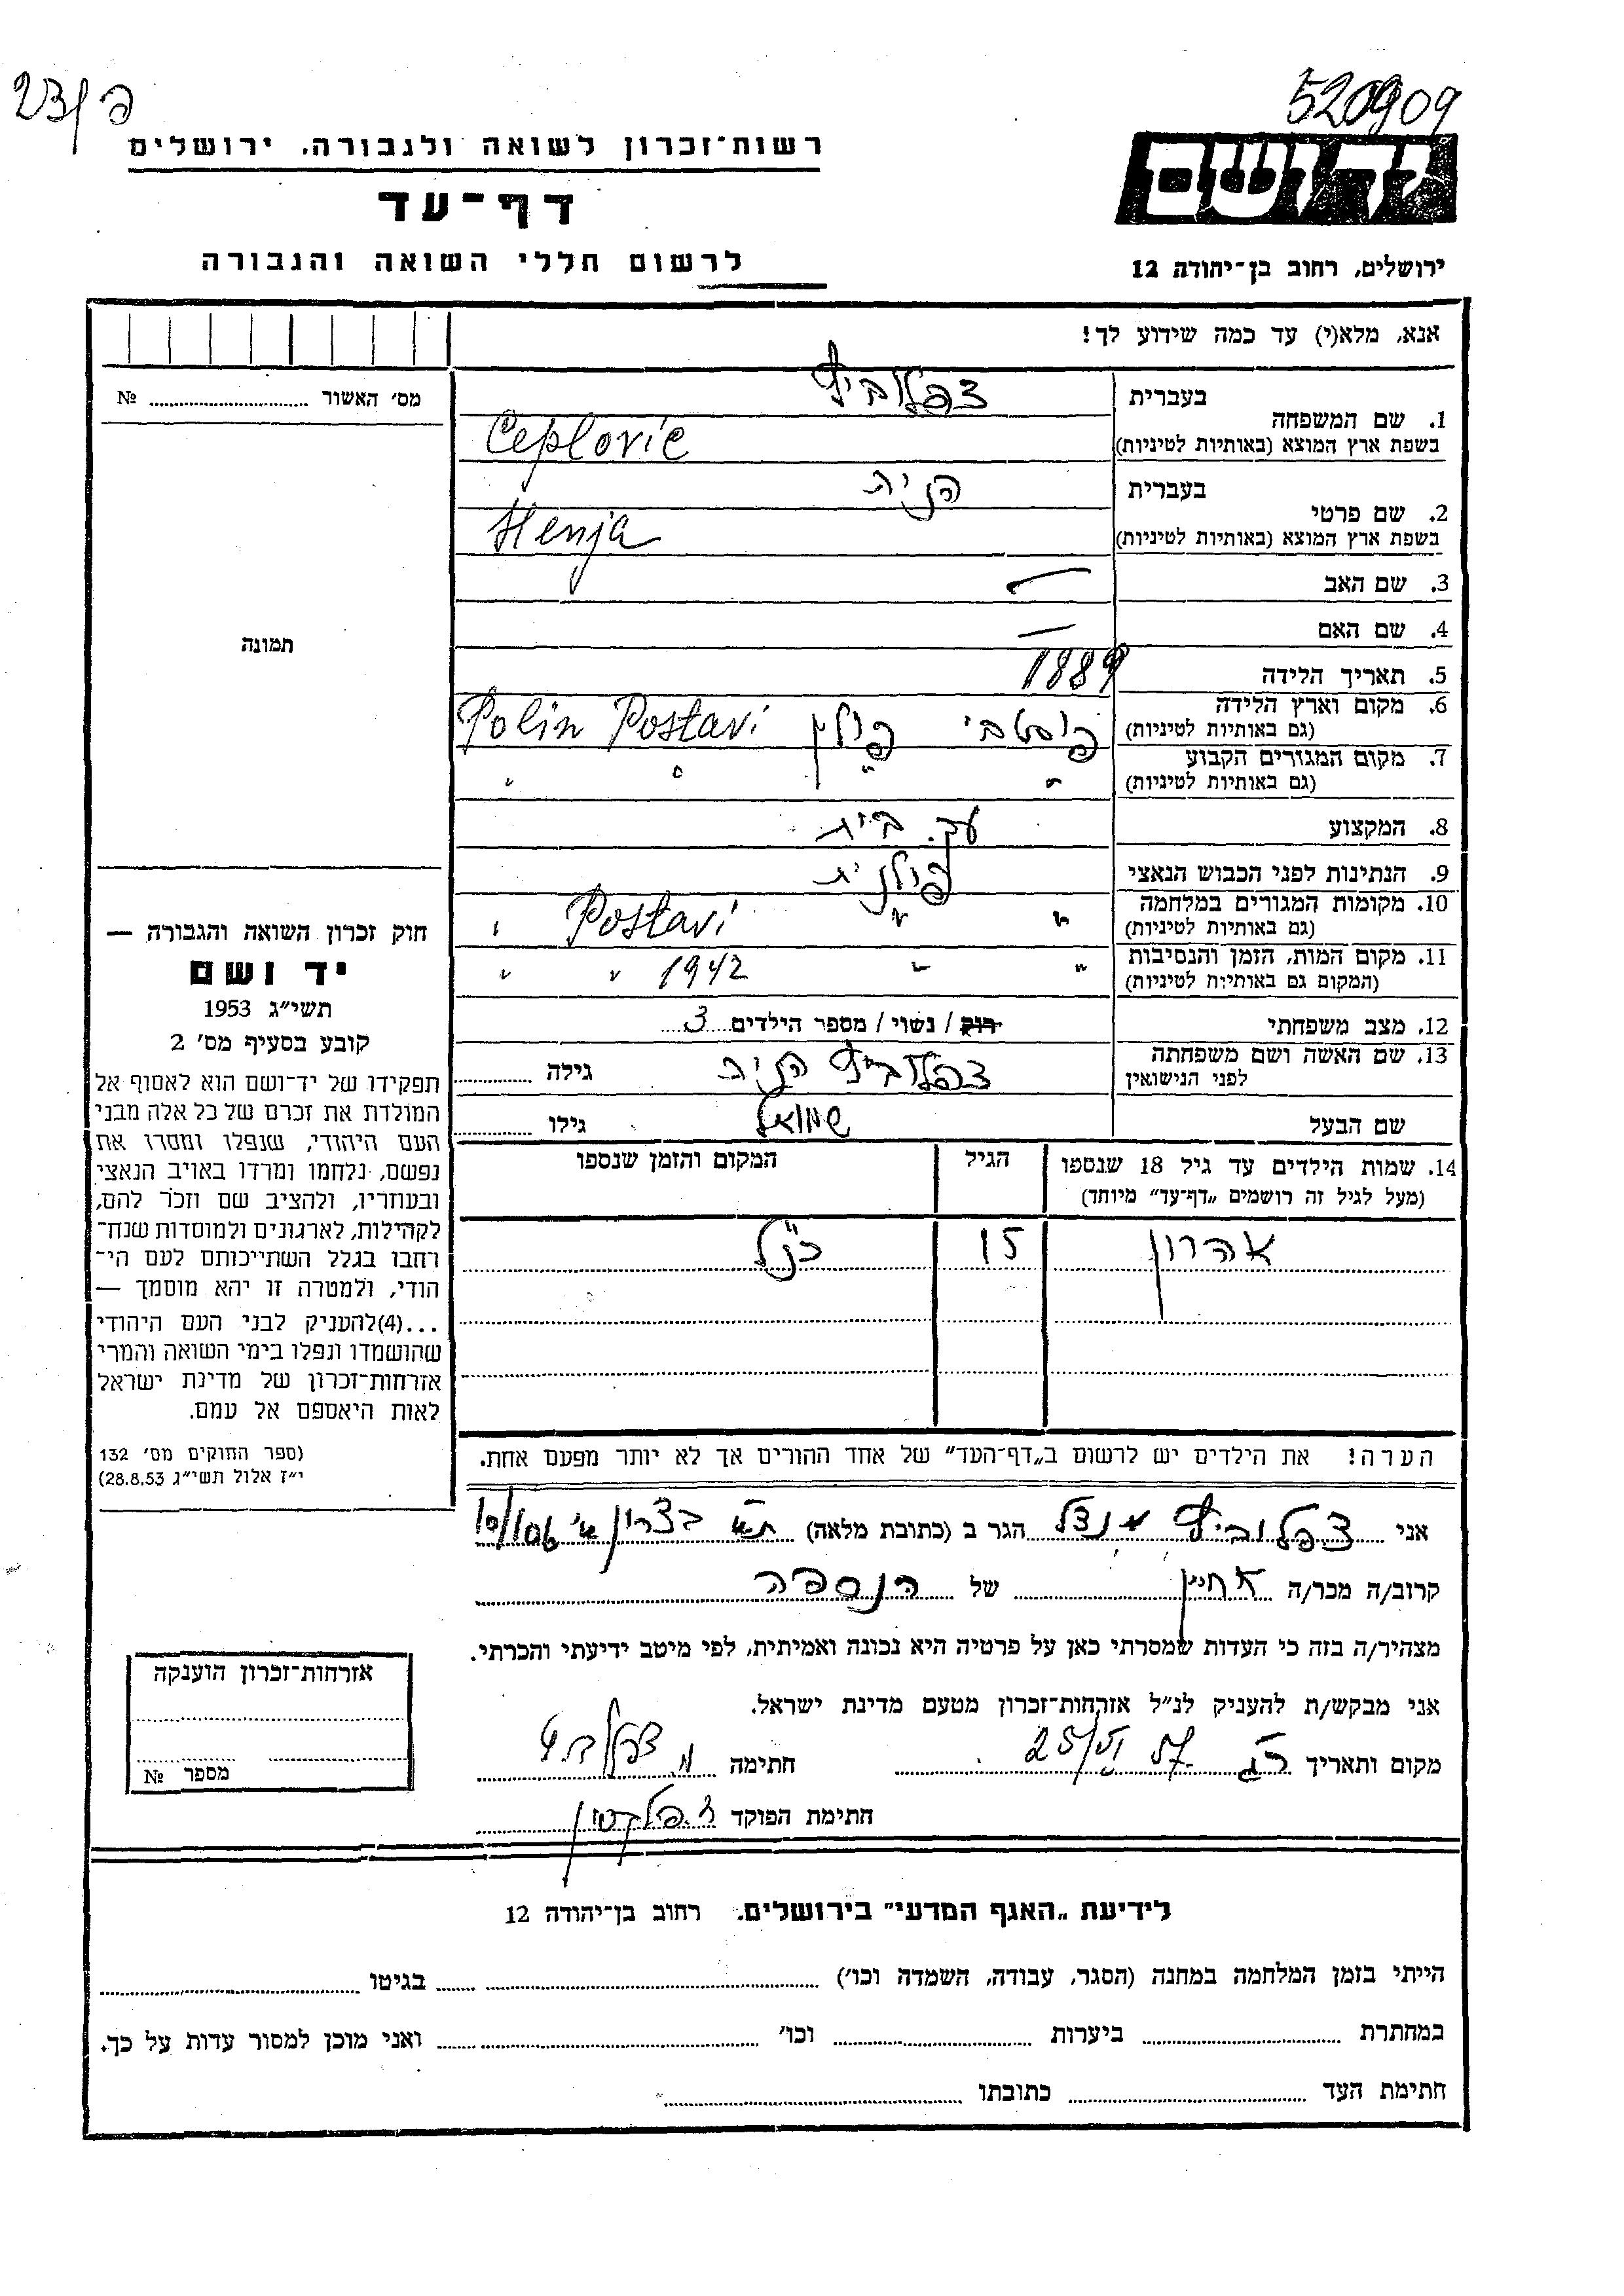 23/פ
520909
רשות־זכרון לשואה ולגבורה. ירושלים
יד ושם
דף־עד
לרשום חללי השואה והגבורה
ירושלים, רחוב בן־יהודה 12
אנא, מלא(י) עד כמה שידוע לך!
מס׳ האשור № ........
תמונה
בעברית צפלוביץ
1. שם המשפחה
בשפת ארץ המוצא (באותיות לטיניות) Ceplovic
בעברית הניה
2. שם פרטי
בשפת ארץ המוצא (באותיות לטיניות) Henja
3. שם האב —
4. שם האם —
5. תאריך הלידה 1889
6. מקום וארץ הלידה פוסטבי פולין Polin Postavi
(גם באותיות לטיניות)
7. מקום המגורים הקבוע " " " "
(גם באותיות לטיניות)
8. המקצוע עק. בית
9. הנתינות לפני הכבוש הנאצי פולנית
10. מקומות המגורים במלחמה " " Postavi "
(גם באותיות לטיניות)
11. מקום המות, הזמן והנסיבות " " 1942 " "
(המקום גם באותיות לטיניות)
12. מצב משפחתי רוק / נשוי / מספר הילדים 3
13. שם האשה ושם משפחתה צפלוביץ הניה גילה
לפני הנישואין
שם הבעל שמואל גילו
14. שמות הילדים עד גיל 18 שנספו הגיל המקום והזמן שנספו
(מעל לגיל זה רושמים „דף־עד” מיוחד)
אהרון 15 כנ"ל
חוק זכרון השואה והגבורה —
יד ושם
תשי״ג 1953
קובע בסעיף מס׳ 2
תפקידו של יד־ושם הוא לאסוף אל
המולדת את זכרם של כל אלה מבני
העם היהודי, שנפלו ומסרו את
נפשם, נלחמו ומרדו באויב הנאצי
ובעוזריו, ולהציב שם וזכר להם,
לקהילות, לארגונים ולמוסדות שנח־
רחבו בגלל השתייכותם לעם הי־
הודי, ולמטרה זו יהא מוסמך —
...(4)להעניק לבני העם היהודי
שהושמדו ונפלו בימי השואה והמרי
אזרחות־זכרון של מדינת ישראל
לאות היאספם אל עמם.
(ספר החוקים מס׳ 132
י״ז אלול תשי״ג 28.8.53)
הערה! את הילדים יש לרשום ב„דף־העד” של אחד ההורים אך לא יותר מפעם אחת.
אני צפלוביץ מנדל הגר ב (כתובת מלאה) ת"א בצרון א' 10/106
קרוב/ה מכר/ה אחיין של הנספה
מצהיר/ה בזה כי העדות שמסרתי כאן על פרטיה היא נכונה ואמיתית, לפי מיטב ידיעתי והכרתי.
אני מבקש/ת להעניק לנ״ל אזרחות־זכרון מטעם מדינת ישראל.
מקום ותאריך 25/VI 57 חתימה מ צפלוביץ
חתימת הפוקד
אזרחות־זכרון הוענקה
מספר №
לידיעת „האגף המדעי” בירושלים. רחוב בן־יהודה 12
הייתי בזמן המלחמה במחנה (הסגר, עבודה, השמדה וכו׳) ........ בגיטו ........
במחתרת ........ ביערות ........ וכו׳ ........ ואני מוכן למסור עדות על כך.
חתימת העד ........ כתובתו ........